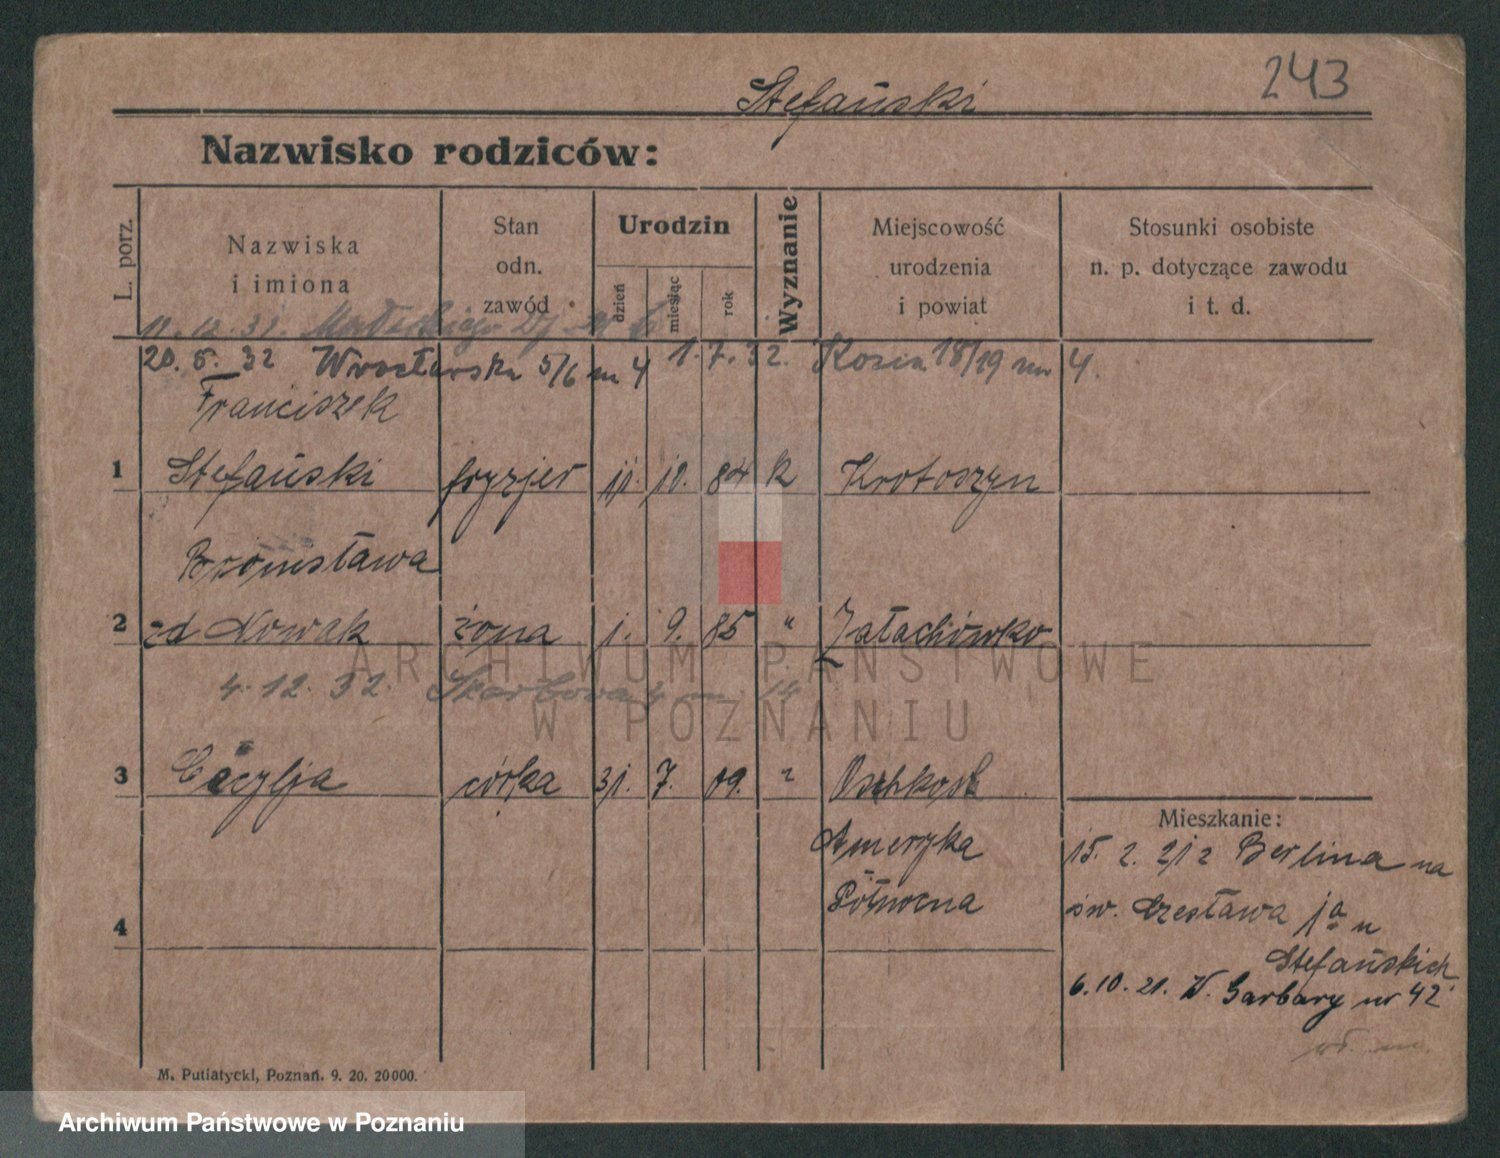 243
Stefański
Nazwisko rodziców:
L. porz.
Nazwiska
i imiona
Stan
odn.
zawód
Urodzin
dzień
miesiąc
rok
Wyznanie
Miejscowość
urodzenia
i powiat
Stosunki osobiste
n. p. dotyczące zawodu
i t. d.
20. 5. 32 Wrocławska 5/6 m 4 1. 7. 32. Kozia 18/19 m 4.
Franciszek
1 Stefański fryzjer 11. 10. 84 K Krotoszyn
Bronisława
2 zd Nowak żona 1. 9. 85 " Załachówko
4. 12. 32. Skarbowa 4 m. 14
3 Cecylja córka 31. 7. 09. " Oschkosh
Ameryka
Północna
4
Mieszkanie:
15. 2. 21 z Berlina na
św. Czesława
Stefańskich
6. 10. 21. W. Garbary nr 42
M. Putiatycki, Poznań. 9. 20. 20000.
ARCHIWUM PAŃSTWOWE
W POZNANIU
Archiwum Państwowe w Poznaniu